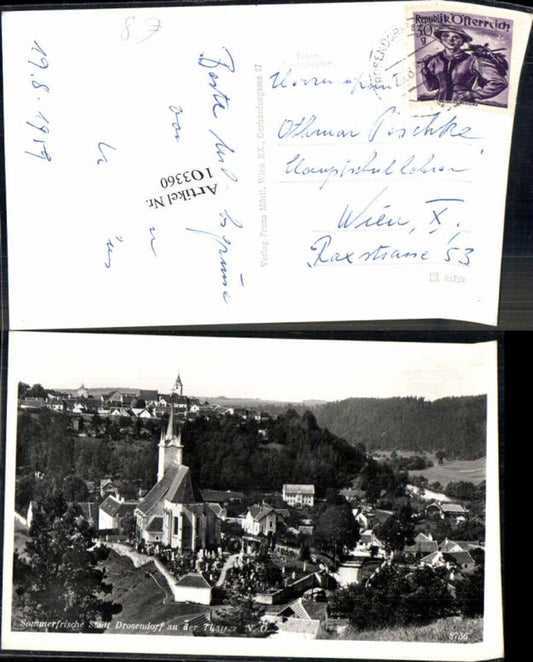 19.8.1959
Beste Url. Grüsse
von
Artikel Nr.
1O3360
Verlag Franz Mörtl, Wien XX., Gerhardusgasse 27
Republik Österreich
30
g
DROSENDORF
Herrn
Othmar Pischke,
Hauptschullehrer
Wien, X.,
Raxstrasse 53
Sommerfrische Stadt Drosendorf an der Thaya N. Ö.